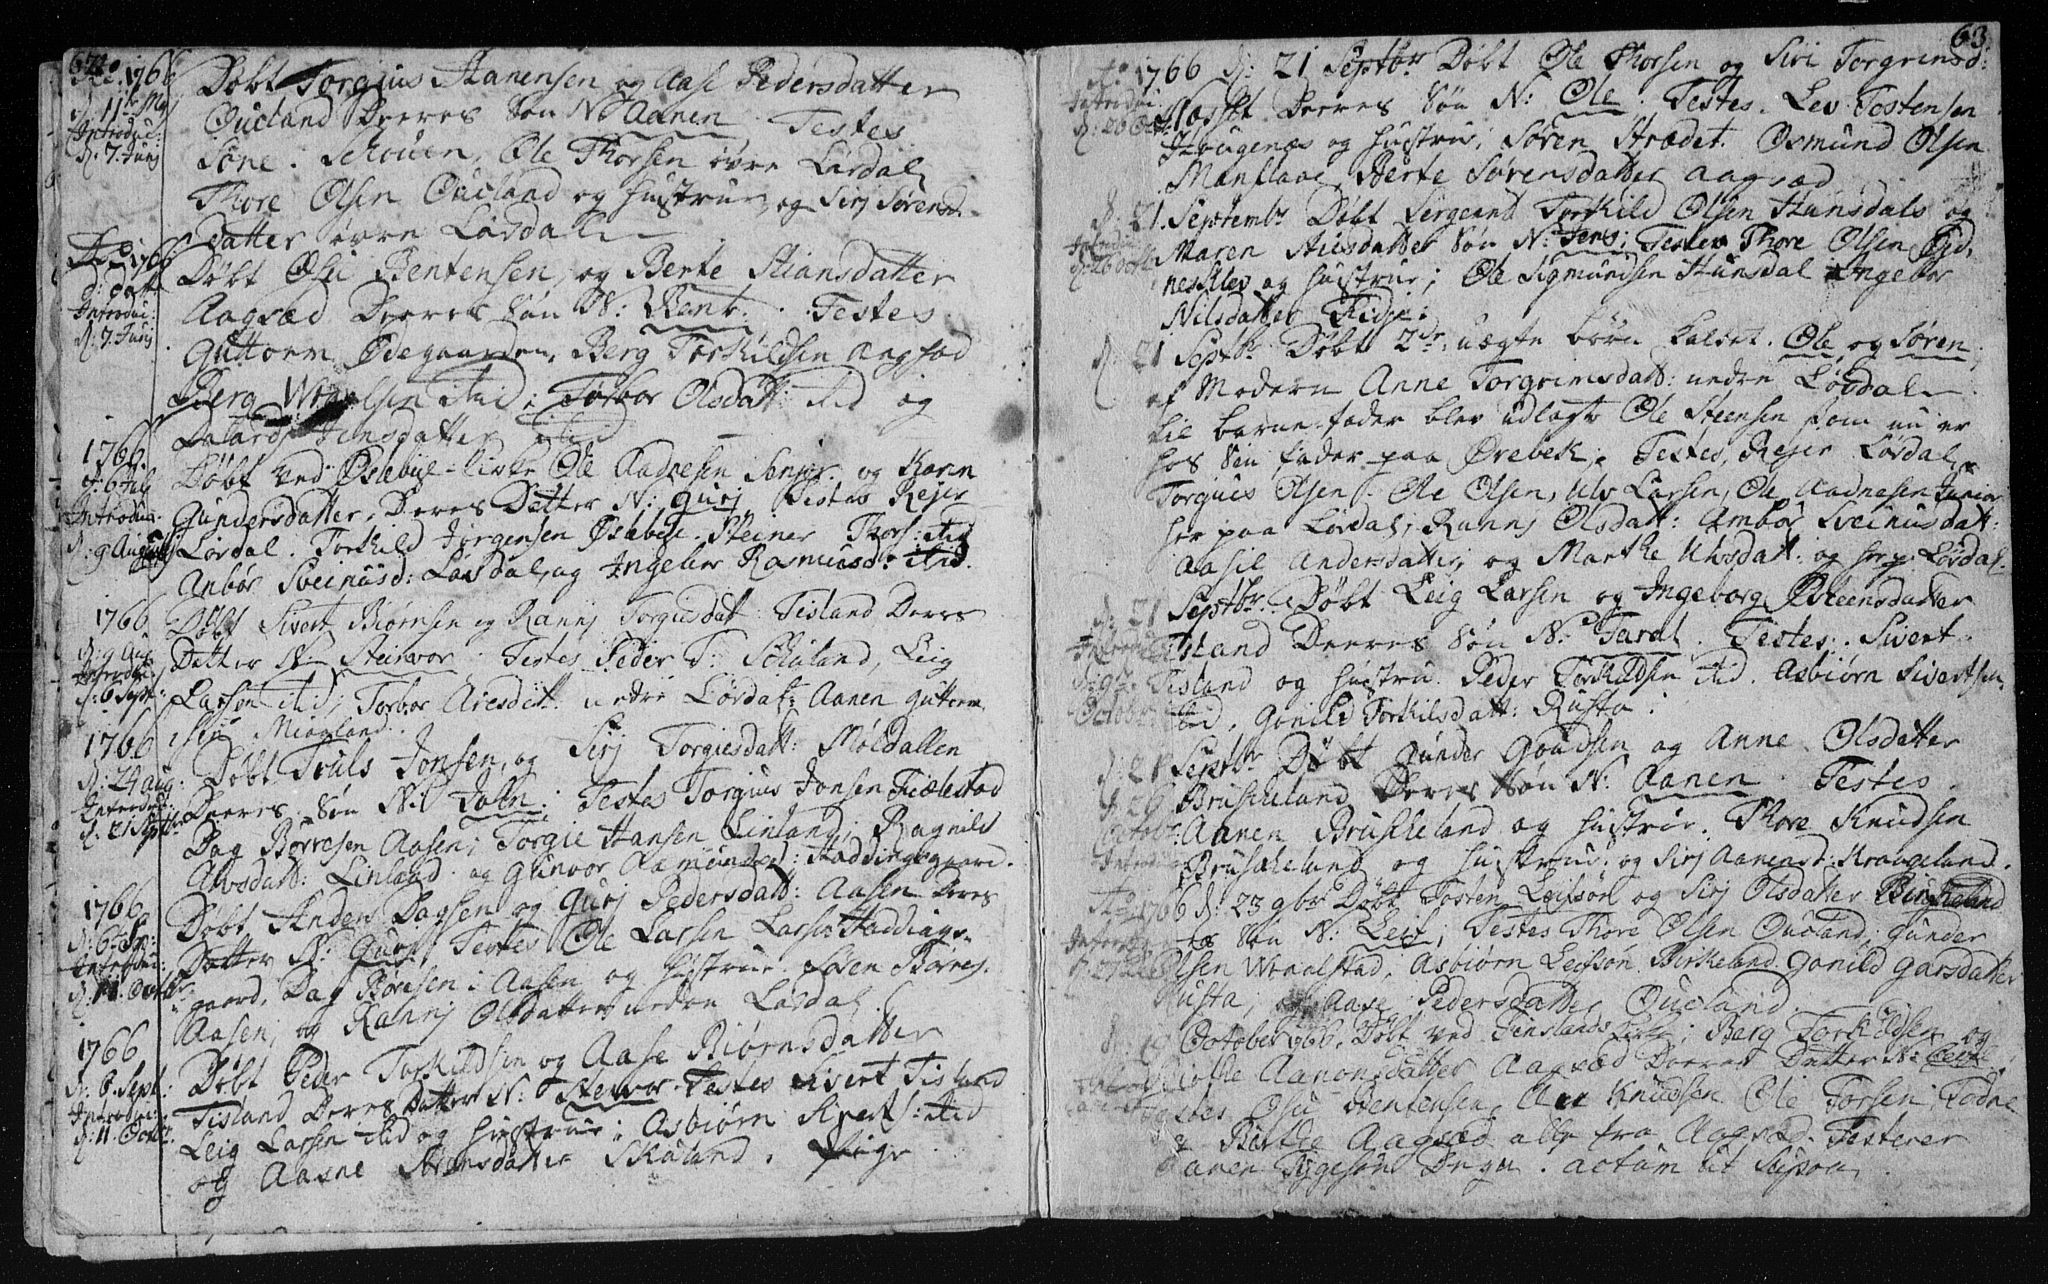 62.
Ao: 1766
d: 11te Maj
Introduc:
d: 7. Junj
Døbt Torgius Aanensen og Aase Pedersdatter
Øueland Deeres Søn N: Aanen. Testes
Søne. Schouen, Ole Thorsen øvre Lørdal,
Thore Olsen Øueland og hustrue, og Sirj Sørens-
datter øvre Lørdal.
Ao 1766
Introduc:
d: 7. Junj
Døbt Osu Bentensen, og Berte Stiansdatter
Aagsæd Deeres Søn N: Bent. Testes
Guttorm Ødegaarden, Berg Torkildsen Aagsæd
Berg Olsen ibid; Torbor Olsdatt: ibid og
Jensdatter ibid
1766.
d: 6 Julj
Introduc:
d: 9 Augustj
Døbt ved Øslebøe-kirke Ole Aadnesen Senior og Karen
Gundersdatter, Deres Datter N: Gurj Testes Rejer
Lørdal. Torkild Jørgensen Øslebøe. Steiner Thors: ibid
Anbor Sveinusd: Lørdal, og Ingebor Rasmusd: ibid.
1766
d: 9 Aug
Introduc:
d: 6 Sept:
Døbt Sivert Biørnsen og Rannj Torgiusdatt: Tisland Deres
Datter N: Steinvor. Testes Peder T: Schaland, Leig
Larsen ibid, Torbor Aresdatt: nedre Lørdal: Aanen Guttorm-
sen Miogland.
1766
d: 24 Aug:
Introduc:
d: 21 Septbr
Døbt Truls Jonsen, og Sirj Torgiesdatt: Møldallen
Deeres Søn N: John; Testes Torgius Jonsen Fiælestad
Dag Børresen Aasen; Torgie Hansen Linland; Ragnild
Alvsdatt: Linland og Gunvor Aamundsd: Haddingsgaard.
1766
d: 6te Sep:
Introduc:
d: 11. Octbr
Døbt, Anders Dagsen og Gurj Pedersdatt: Aasen Deres
Datter N: Gurj, Testes Ole Larsen Haddings-
gaard, Dag Børresen i Aasen og hustrue Søren Børres.
Aasen, og Rannj Olsdatter neden Lørdal
1766
d: 6. Sept:
Introduc:
d: 11. Octbr.
Døbt Peder Torkildsen og Aase Biørnsdatter
Tisland Deres Datter N: Stenvor Testes Sivert Tisland
Leig Larsen ibid og hustrue; Asbiørn Siverts: ibid
og Aasne Stiansdatter Skaland, Pige
63.
Ao: 1766 d: 21 Septbr Døbt Ole Thorsen og Siri Torgrimsd:
Introduc:
d: 26 Octbr
Deeres Søn N: Ole. Testes. Lev Tostensen
Hougenæs og hustrue, Søren Strædet. Osmund Olsen
Manflaae, Berte Sørensdatter Aagsæd
d: 21. Septembr Døbt Sergeant Torkild Olsen Hunsdals og
Introduc:
d: 26 Octbr
Maren Niusdatter Søn N: Jens; Testes Thore Olsen Eid,
neskley og hustrue; Ole Sigmundsen Hunsdal Ingebor
Nilsdatter Ridje;
d: 21 Septbr Døbt 2de uægte børn kaldet. Ole og Søren,
af Moderen Anne Torgrimsdatt: nedre Lørdal
til barne-fader blev udlagt Ole Steensen som nu er
hos sin fader paa Ørebek. Testes, Rejer Lørdal,
Torgius Olsen. Ole Olsen, Ulv Larsen, Ole Aadnesen Junior
her paa Lørdal; Rannj Olsdatt: Ambor Sveinusdatt:
Aasil Andersdatter, og Marthe Ulvsdatt: og her p: Lørdal.
d: 21 Septbr. Døbt Leig Larsen og Ingeborg Østeensdatter
Introduc:
Octobr
Tisland Deeres Søn N: Taral. Testes: Sivert
Tisland og hustru. Peder Torkildsen ibid. Asbiørn Sivertsen
ibid, Gonild Torkilsdatt: Rusta.
d: 21 Septbr Døbt Gunder Goudsen og Anne Olsdatter
d. 26
Octobr:
Introduc:
Brusheland Deeres Søn N: Aanen. Testes
Aanen Brusheland og hustrue. Thore Knudsen
Brusheland og hustrue. og Sirj Aanensd: Kraageland.
Ao: 1766 d: 23 9br Døbt Tosten Leifsøn og Sirj Olsdatter Birkeland
Introduc:
Søn N: Leif; Testes Thore Olsen Øueland; Gunder
Olsen Wraalstad, Asbiørn Leifsøn Birkeland Gonild Garsdatter
Rusta, Aase Pedersdatter Øueland
d. 19 October 1766. Døbt ved Finslands Kirke; Berg Torkildsen og
Aanonsdatter Aagsæd Deeres Datter N: Berte
Testes Osu Bentensen, Knudsen Ole Torsen Fodne
Berthe Aagsæd alle fra Aagsæd. Testerer
Aanen Tygesøn Ingn. actum ut supra